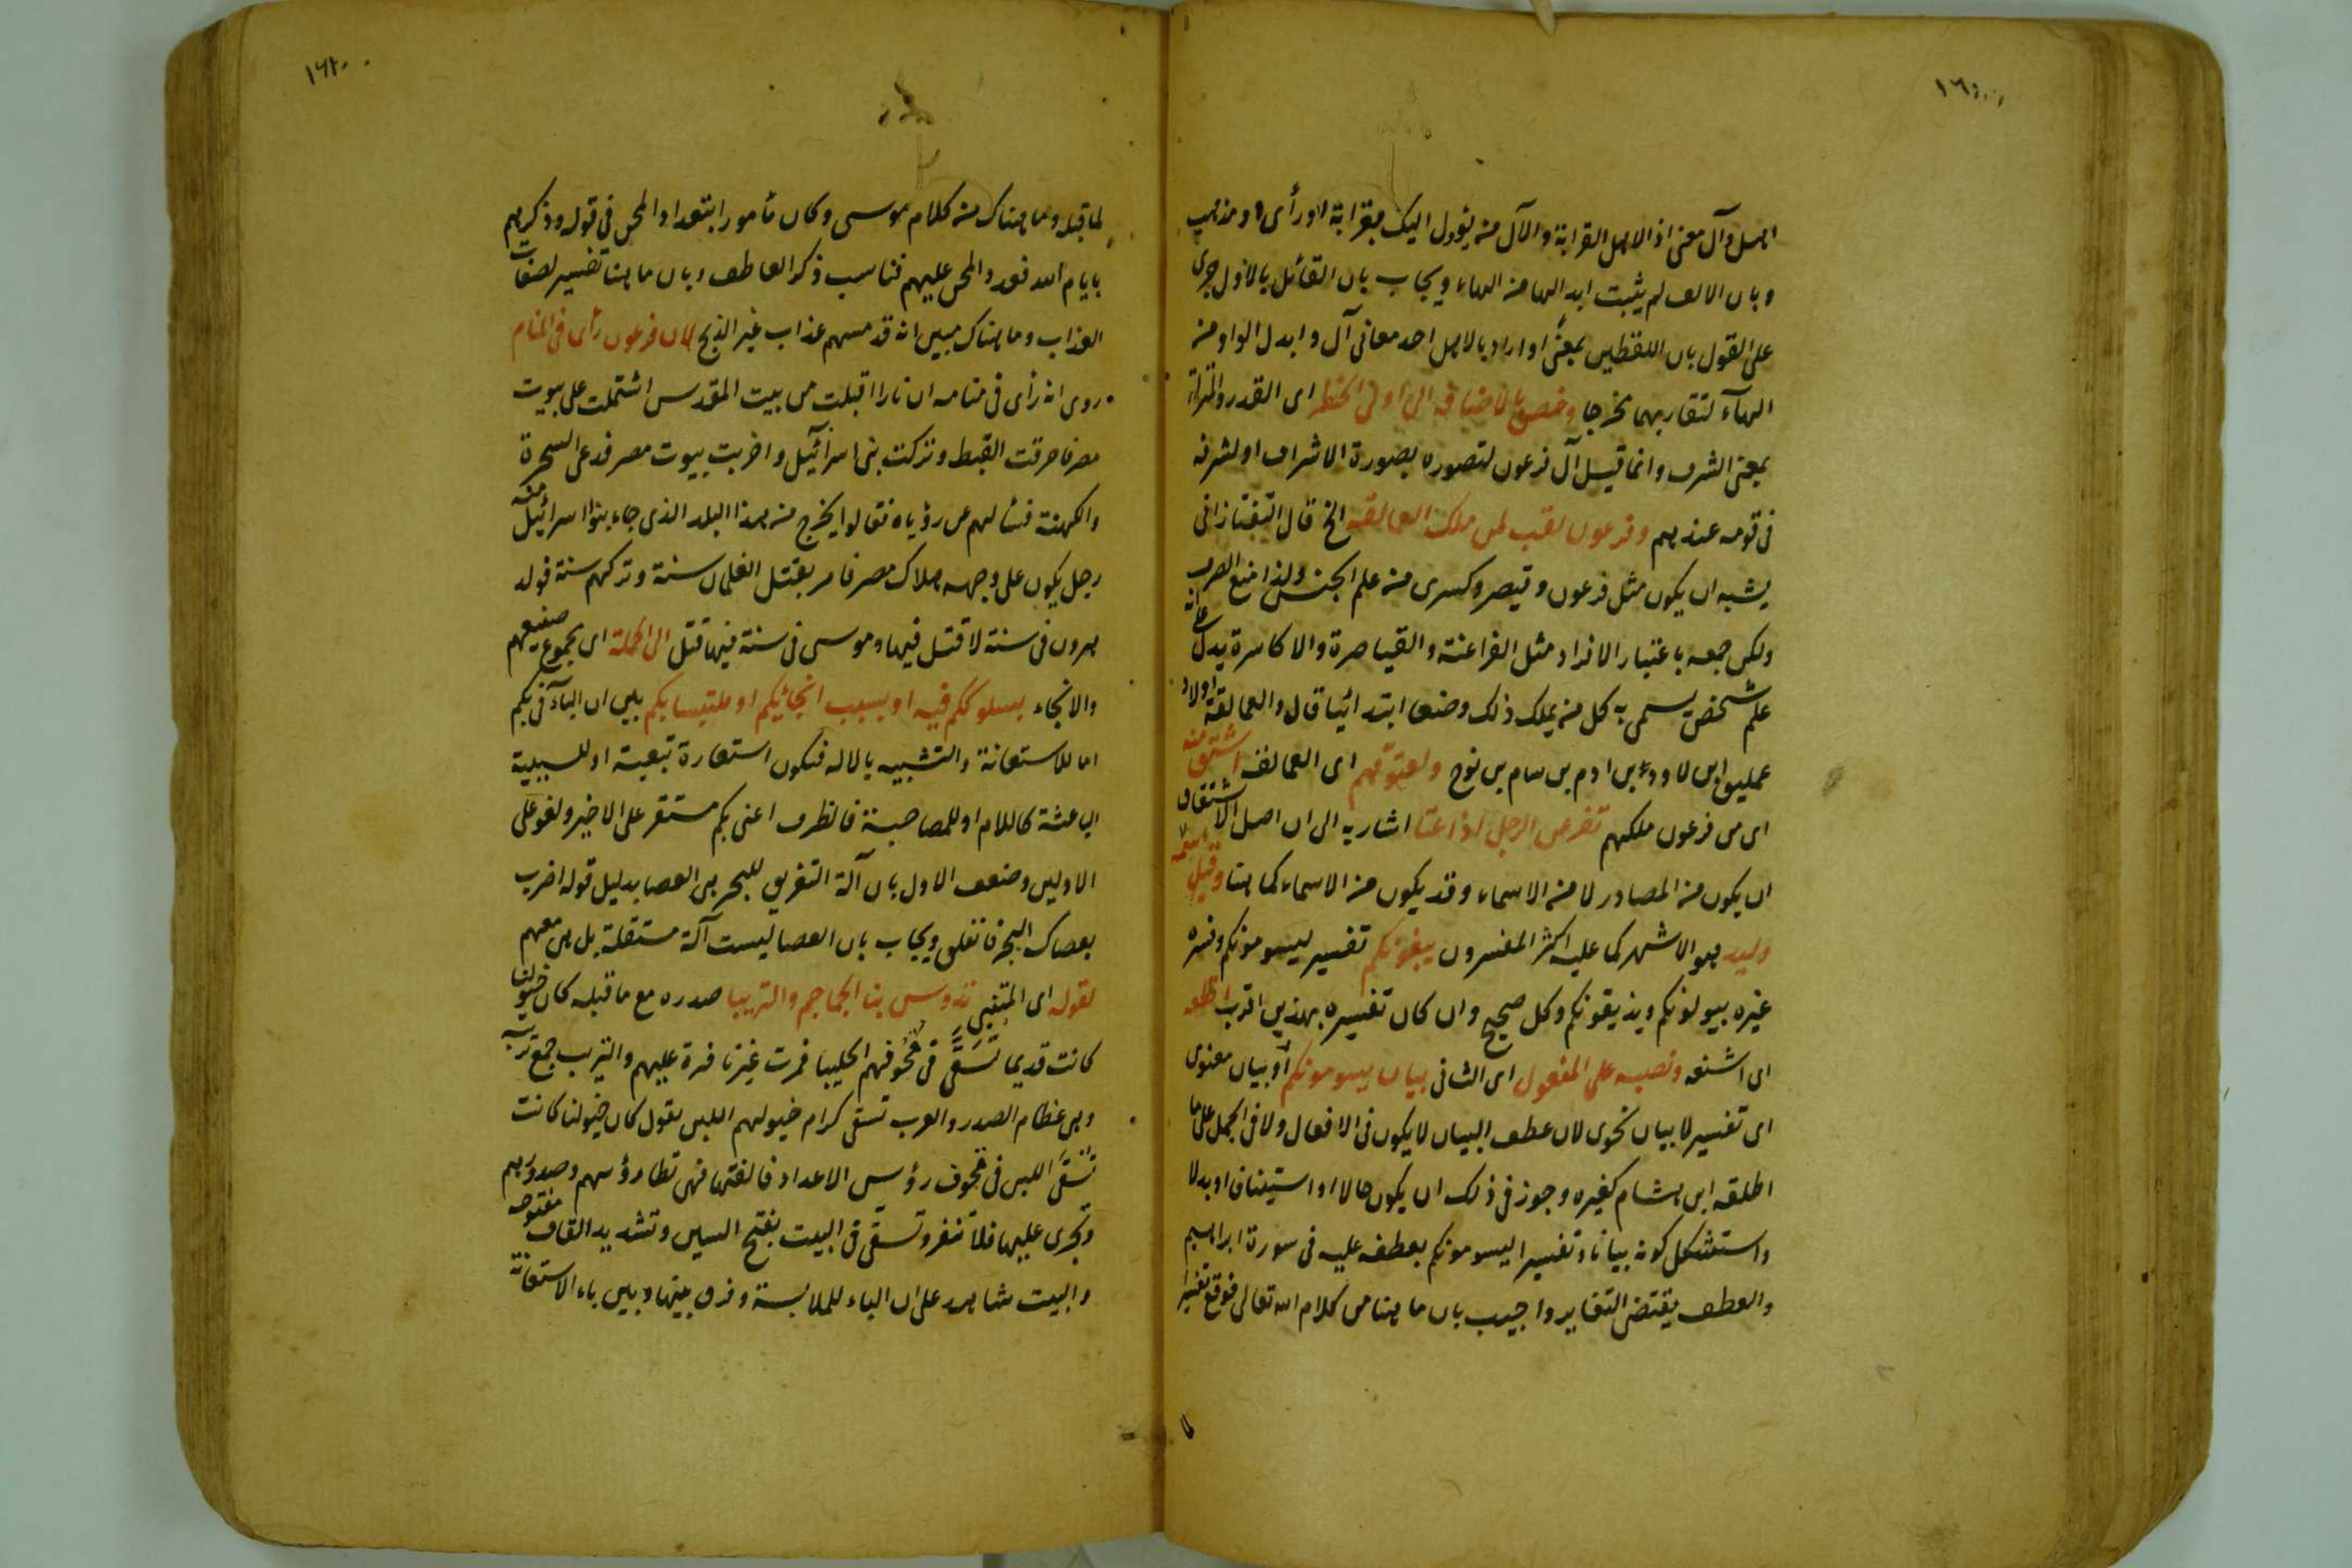 اهل وآل معنى اذ الاهل القرابة والآل من يؤول اليك بقرابة او رأى او مذهب
وبان الالف لم يثبت ابدالها من الهاء ويجاب بان القائل بالاول جرى
على القول بان اللفظين بمعنًى او اراد بالاهل احد معانى آل وابدل الواو من
الهآء لتقاربهما مخرجا وخص بالاضافة الى اولى الخطر اى القدر والمنزلة
بمعنى الشرف وانما قيل آل فرعون لتصوره بصورة الاشراف او لشرفه
فى قومه عندهم وفرعون لقب لمن ملك العمالقة الخ قال التفتازانى
يشبه ان يكون مثل فرعون وقيصر وكسرى من علم الجنس ولذا منع الصرف
ولكن جمعه باعتبار الافراد مثل الفراعنة والقياصرة والاكاسرة يدل على انه
علم شخص يسمى به كل من يملك ذلك وضعا ابتدائيا قال والعمالقة اولاد
عمليق ابن لاود بن ادم بن سام بن نوح ولعتوّهم اى العمالقة اشتق منه
اى من فرعون ملكهم تفرعن الرجل اذا عتا اشار به الى ان اصل الاشتقاق
ان يكون من المصادر لا من الاسماء وقد يكون من الاسماء كما هنا وقيل اسمه
وليد هو الاشهر كما عليه اكثر المفسرون يبغونكم تفسير ليسومونكم وفسره
غيره بيولونكم ويذيقونكم وكل صحيح وان كان تفسيره بهذين اقرب افظعه
اى اشنعه ونصبه على المفعول اى الثانى بيان يسومونكم او بيان معنوى
اى تفسير لا بيان نحوى لان عطف البيان لا يكون فى الافعال ولا فى الجمل على ما
اطلقه ابن هشام كغيره وجوز فى ذلك ان يكون حالا او استينافا او بدلا
واستشكل كونه بيانا وتفسيرا ليسومونكم بعطفه عليه فى سورة ابراهيم
والعطف يقتضى التغاير واجيب بان ما هنا من كلام الله تعالى فوقع تفسيرا
لما قبله وما هناك من كلام موسى وكان مأمورا بتعداد المحن فى قوله وذكرهم
بايام الله فعدد المحن عليهم فناسب ذكر العاطف وبان ما هنا تفسير لصفات
العذاب وما هناك مبين انه قد مسهم عذاب غير الذبح لان فرعون رأى فى المنام
روى انه رأى فى منامه ان نارا اقبلت من بيت المقدس اشتملت على بيوت
مصر فاحرقت القبط وتركت بنى اسرائيل واخربت بيوت مصر فدعى السحرة
والكهنة فسألهم عن رؤياه فقالوا يخرج من هذا البلد الذى جاء بنوا اسرائيل منه
رجل يكون على وجهه هلاك مصر فامر بقتل الغلمان سنة وتركهم سنة فولد
هرون فى سنة لا قتل فيها وموسى فى سنة فيها قتل الى الجملة اى مجموع صنيعهم
والانجاء بسلوككم فيه او بسبب انجائكم او ملتبسا بكم بين ان الباء فى بكم
اما للاستعانة والتشبيه بالاله فتكون استعارة تبعية او للسببية
الباعثة كاللام او للمصاحبة فالظرف اعنى بكم مستقر على الاخير ولغو على
الاولين وضعف الاول بان آلة التفريق للبحر هى العصا بدليل قوله اضرب
بعصاك البحر فانفلق ويجاب بان العصا ليست آلة مستقلة بل هى معهم
لقوله اى المتنبى تدوس بنا الجماجم والتريبا صدره مع ما قبله كان خيولنا
كانت قديما تُسَقَّى فى قُحُوفهم الحليبا فمرت غير نافرة عليهم والتريب جمع تربة
وهى عظام الصدر والعرب تسقى كرام خيولهم اللبن يقول كان خيولنا كانت
تُسقى اللبن فى قحوف رؤس الاعداد فالفتها فهى تطا رؤسهم وصدورهم
وتجرى عليها فلا تنفر وتسقى فى البيت بفتح السين وتشديد القاف مفتوحه
والبيت شاهد على ان الباء للملابسة وفرق بينها وبين باء الاستعانة